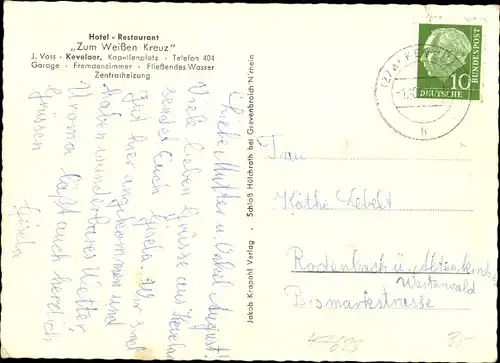 Hotel - Restaurant
„Zum Weißen Kreuz"
J. Voss - Kevelaer, Kapellenplatz - Telefon 404
Garage - Fremdenzimmer - Fließendes Wasser
Zentralheizung
Liebe Mutter u. Onkel August!
Viele lieben Grüsse aus Kevelaer
sendet Euch Gisela. Wir sind
gut hier angekommen und
haben wunderbares Wetter
Uroma läßt auch herzlich
Grüssen
Gisela
Jakob Krapohl Verlag - Schloß Hülchrath bei Grevenbroich N'rhein
10
DEUTSCHE BUNDESPOST
(22a)
b
Frau
Käthe
Rodenbach ü. Altenkirchen
Westerwald
Bismarkstrasse